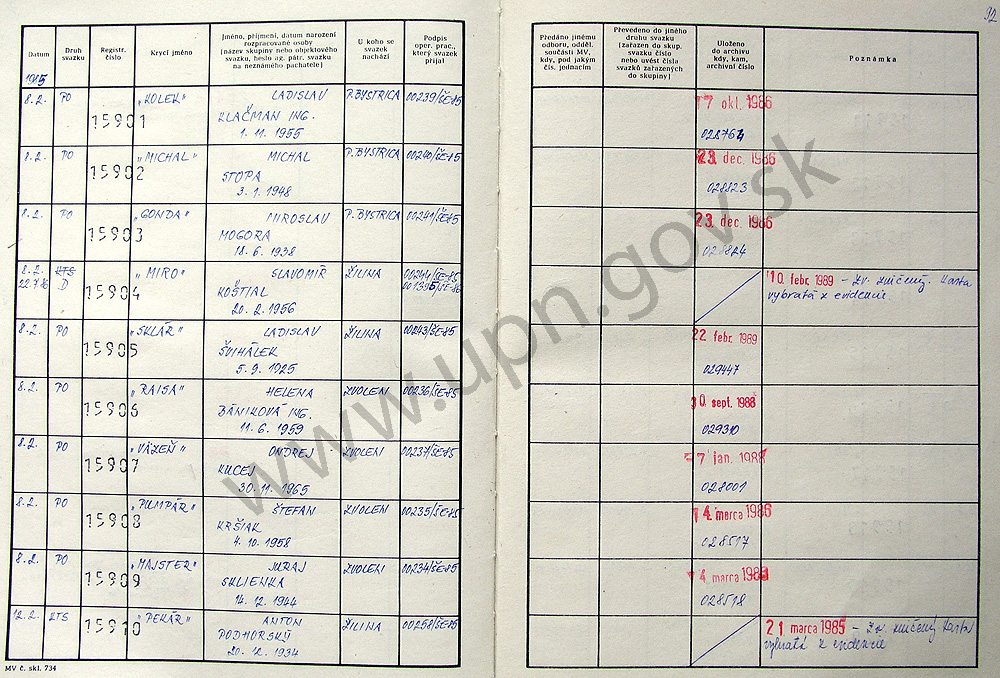 92
Datum
Druh svazku
Registr. číslo
Krycí jméno
Jméno, příjmení, datum narození rozpracované osoby (název skupiny nebo objektového svazku, heslo ag. pátr. svazku na neznámého pachatele)
U koho se svazek nachází
Podpis oper. prac., který svazek přijal
Předáno jinému odboru, odděl. součásti MV, kdy, kam, pod jakým čís. jednacím
Převedeno do jiného druhu svazku (zařazen do skup. svazku číslo nebo uvést čísla svazků zařazených do skupiny)
Uloženo do archivu kdy, kam, archivní číslo
Poznámka
1985
8.2. PO 15901 „KOLEK" LADISLAV P. BYSTRICA 00239/ŠE-85 17 okt. 1986
KLAČMAN ING.
1. 11. 1955 028764
8.2. PO 15902 „MICHAL" MICHAL P. BYSTRICA 00240/ŠE-85 23. dec. 1986
STOPA
3. 1. 1948 028823
8.2. PO 15903 „GONDA" MIROSLAV P. BYSTRICA 00241/ŠE-85 23. dec. 1986
MOGORA
18. 6. 1938 028824
8.2. KTS 15904 „MIRO" SLAVOMÍR ŽILINA 00244/ŠE-85 10. febr. 1989 - Zv. zničený. Karta
22.7.86 D 001395/ŠE-86 vybratá z evidencie.
KOŠTIAL
20. 2. 1956
8.2. PO 15905 „SKLÁR" LADISLAV ŽILINA 00243/ŠE-85 22. febr. 1989
ŠVIHÁLEK
5. 9. 1925 029447
8.2. PO 15906 „RAISA" HELENA ZVOLEN 00236/ŠE-85 30. sept. 1988
BÁNIKOVÁ ING.
11. 6. 1959 029310
8.2. PO 15907 „VÄZEŇ" ONDREJ ZVOLEN 00237/ŠE-85 7 jan. 1988
KUCEJ
30. 11. 1965 028001
8.2. PO 15908 „PUMPÁR" ŠTEFAN ZVOLEN 00235/ŠE-85 14. marca 1986
KRŠIAK
4. 10. 1958 028517
8.2. PO 15909 „MAJSTER" JURAJ ZVOLEN 00234/ŠE-85 4. marca
SKLIENKA
14. 12. 1944 028518
12.2. KTS 15910 „PEKÁR" ANTON ŽILINA 00258/ŠE-85 21 marca 1985 - Zv. zničený Karta
PODHORSKÝ vybratá z evidencie
20. 12. 1934
MV č. skl. 734
www.upn.gov.sk